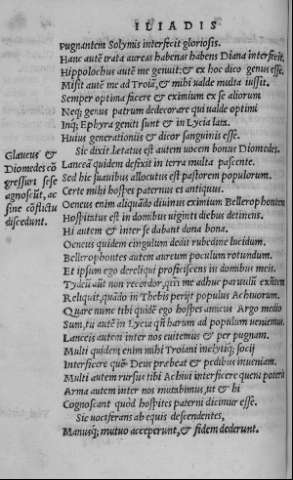 ILIADIS
Pugnantem Solymis interfecit gloriosis.
Hanc autẽ irata aureas habenas habens Diana interfecit,
Hippolochus autẽ me genuit: & ex hoc dico genus esse,
Misit autẽ me ad Troiã, & mihi ualde multa iussit.
Semper optima facere & eximium ex se aliorum
Neq; genus patrum dedecorare qui ualde optimi
Inq; Ephyra geniti sunt & in Lycia lata.
Huius generationis & dicor sanguinis esse.
Sic dixit. Letatus est autem uocem bonus Diomedes.
Glaucus &
Diomedes cõ
gressuri sese
agnoscũt, ac
sine cõflictu
discedunt.
Lanceã quidem defixit in terra multa pascente.
Sed hic suauibus allocutus est pastorem populorum.
Certe mihi hospes paternus es antiquus.
Oeneus enim aliquãdo diuinus eximium Bellerophontem
Hospitatus est in domibus uiginti diebus detinens.
Hi autem & inter se dabant dona bona.
Oeneus quidem cingulum dedit rubedine lucidum.
Bellerophontes autem aureum poculum rotundum.
Et ipsum ego dereliqui proficiscens in domibus meis.
Tydeũ aũt non recordor, quia me adhuc paruulũ existentem
Reliquit, quãdo in Thebis perijt populus Achiuorum.
Quare nunc tibi quidẽ ego hospes amicus Argo medio
Sum, tu autẽ in Lycia qñ harum ad populum ueniemus.
Lanceis autem inter nos euitemus & per pugnam.
Multi quidem enim mihi Troiani inclytiq; socij
Interficere quẽ Deus prebeat & pedibus inueniam.
Multi autem rursus tibi Achiui interficere quem poteris
Arma autem inter nos mutabimus, ut & hi
Cognoscant quod hospites paterni dicimur esse.
Sic uociferans ab equis descendentes,
Manusq; mutuo acceperunt, & fidem dederunt.